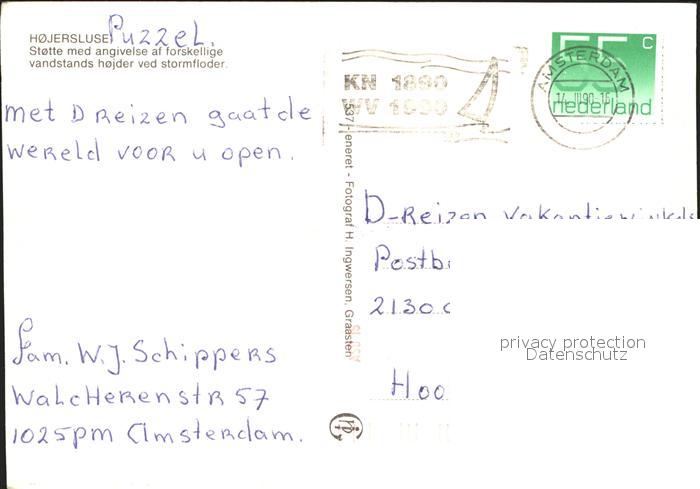 Puzzel.
HØJERSLUSE
Støtte med angivelse af forskellige
vandstands højder ved stormfloder.
KN 1890
WV 1990
AMSTERDAM
55 c
nederland
met D Reizen gaat de
wereld voor u open.
Fotograf H. Ingwersen, Graasten
D-Reizen vakantiewinkels
Postb
2130
Hoo
privacy protection
Datenschutz
fam. W.J. Schippers
Walcherenstr 57
1025pm Amsterdam.